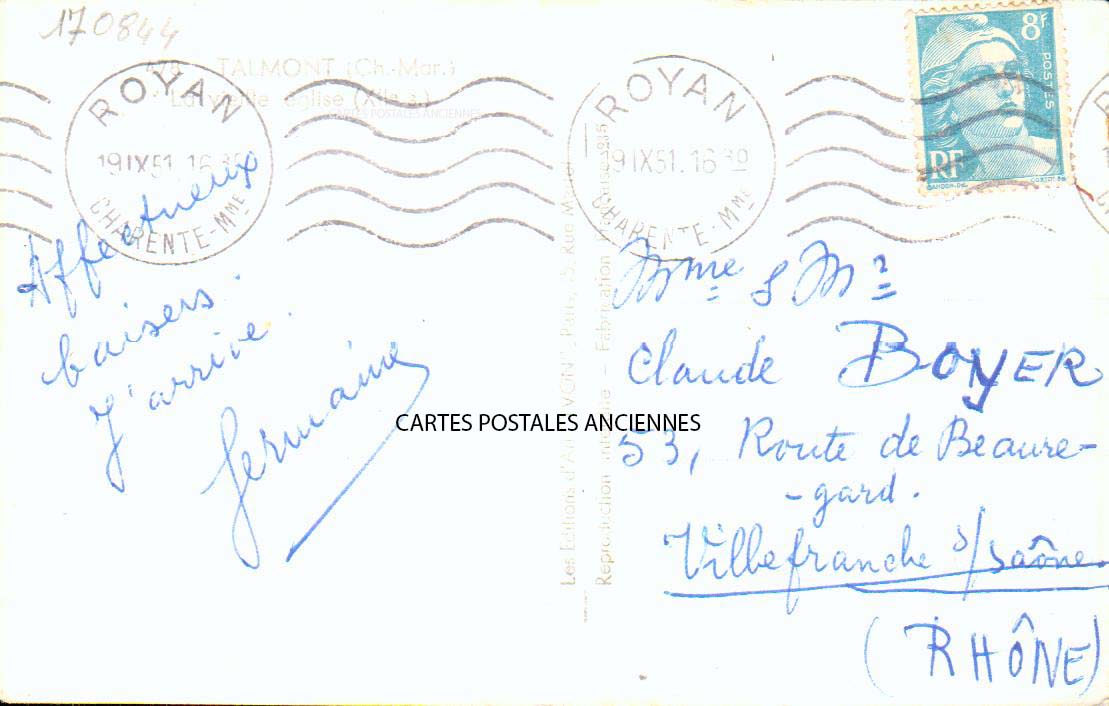 170844
478 TALMONT (Ch.-Mar.)
La vieille église (XIIe s.)
CARTES POSTALES ANCIENNES
ROYAN
19 IX 51. 16 30
CHARENTE-Mme
ROYAN
19 IX 51. 16 30
CHARENTE-Mme
8f
POSTES
RF
GANDON. Del.
Affectueux
baisers.
J'arrive.
Germaine
Les Editions d'Art "YVON", Paris, 15, Rue Martel
Reproduction interdite - Fabrication Française
CARTES POSTALES ANCIENNES
Mme & Mr
Claude BOYER
53, Route de Beaure-
-gard.
Villefranche s/Saône.
(RHÔNE)